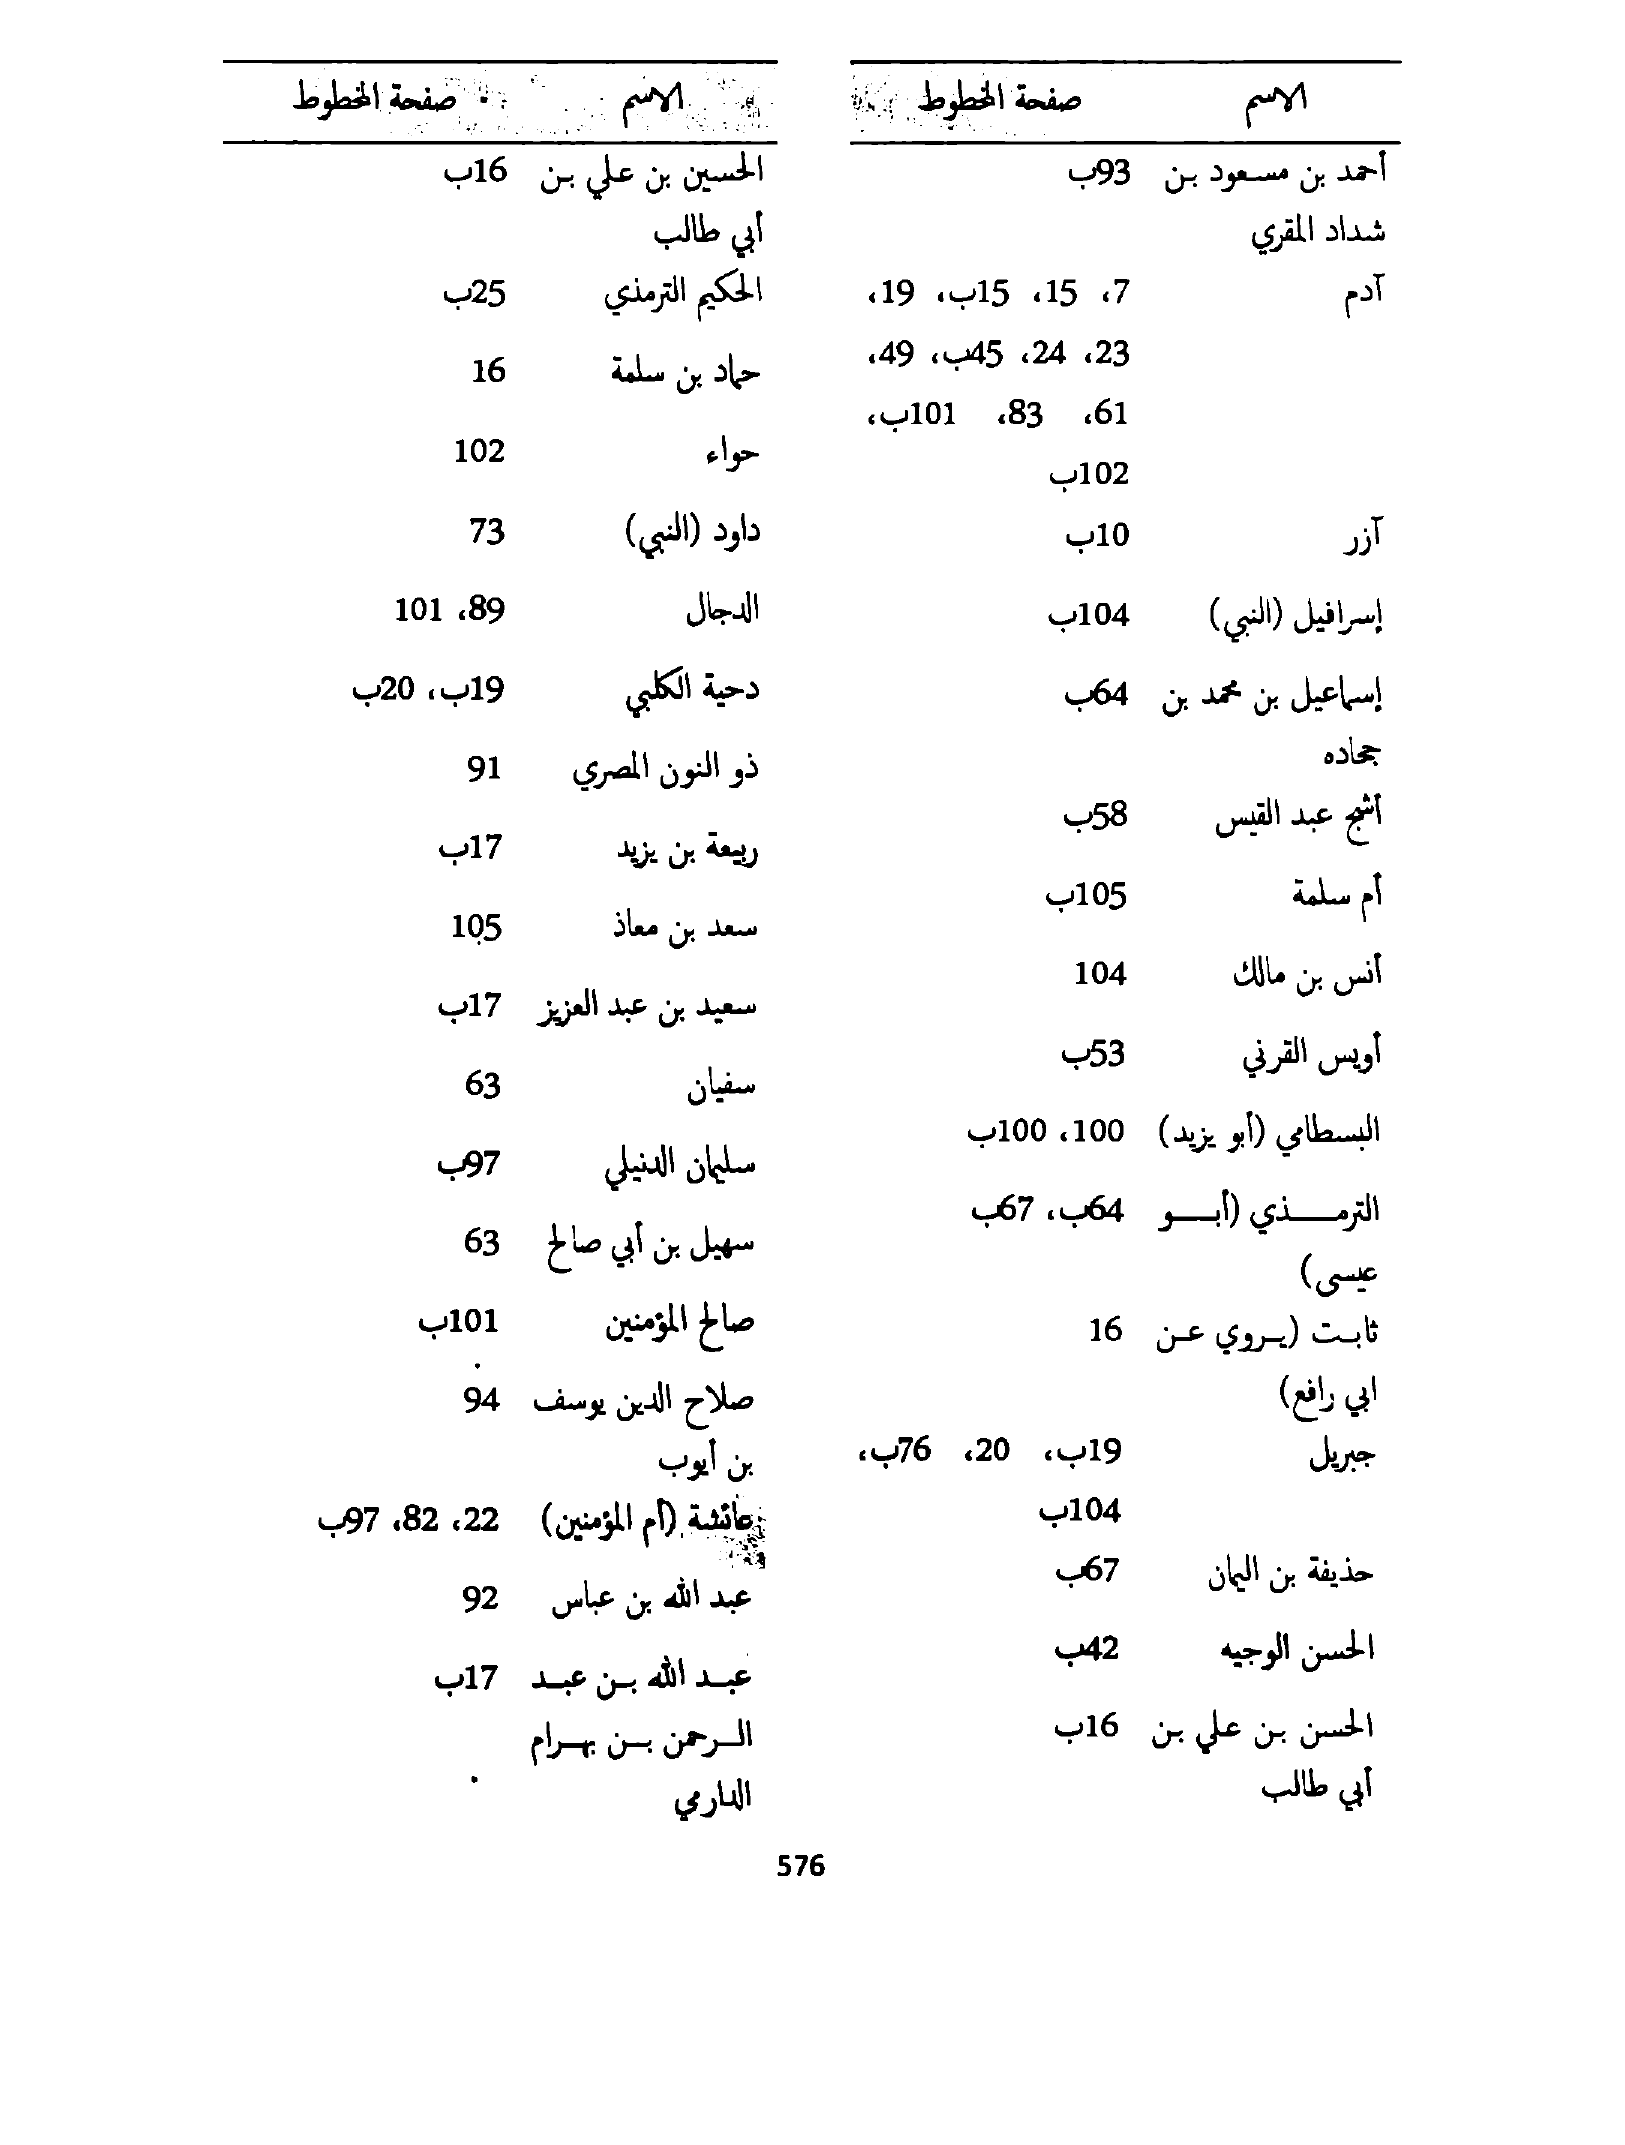 الاسم صفحة المخطوط
أحمد بن مسعود بن 93ب
شداد المقري
آدم 7، 15، 15ب، 19،
23، 24، 45ب، 49،
61، 83، 101ب،
102ب
آزر 10ب
إسرافيل (النبي) 104ب
إسماعيل بن محمد بن 64ب
جحاده
أشج عبد القيس 58ب
أم سلمة 105ب
أنس بن مالك 104
أويس القرني 53ب
البسطامي (أبو يزيد) 100، 100ب
الترمذي (أبو 64ب، 67ب
عيسى)
ثابت (يروي عن 16
ابي رافع)
جبريل 19ب، 20، 76ب،
104ب
حذيفة بن اليمان 67ب
الحسن الوجيه 42ب
الحسن بن علي بن 16ب
أبي طالب
الاسم صفحة المخطوط
الحسين بن علي بن 16ب
أبي طالب
الحكيم الترمذي 25ب
حماد بن سلمة 16
حواء 102
داود (النبي) 73
الدجال 89، 101
دحية الكلبي 19ب، 20ب
ذو النون المصري 91
ربيعة بن يزيد 17ب
سعد بن معاذ 105
سعيد بن عبد العزيز 17ب
سفيان 63
سليمان الدنيلي 97ب
سهيل بن أبي صالح 63
صالح المؤمنين 101ب
صلاح الدين يوسف 94
بن أيوب
عائشة (أم المؤمنين) 22، 82، 97ب
عبد الله بن عباس 92
عبد الله بن عبد 17ب
الرحمن بن بهرام
الدارمي
576